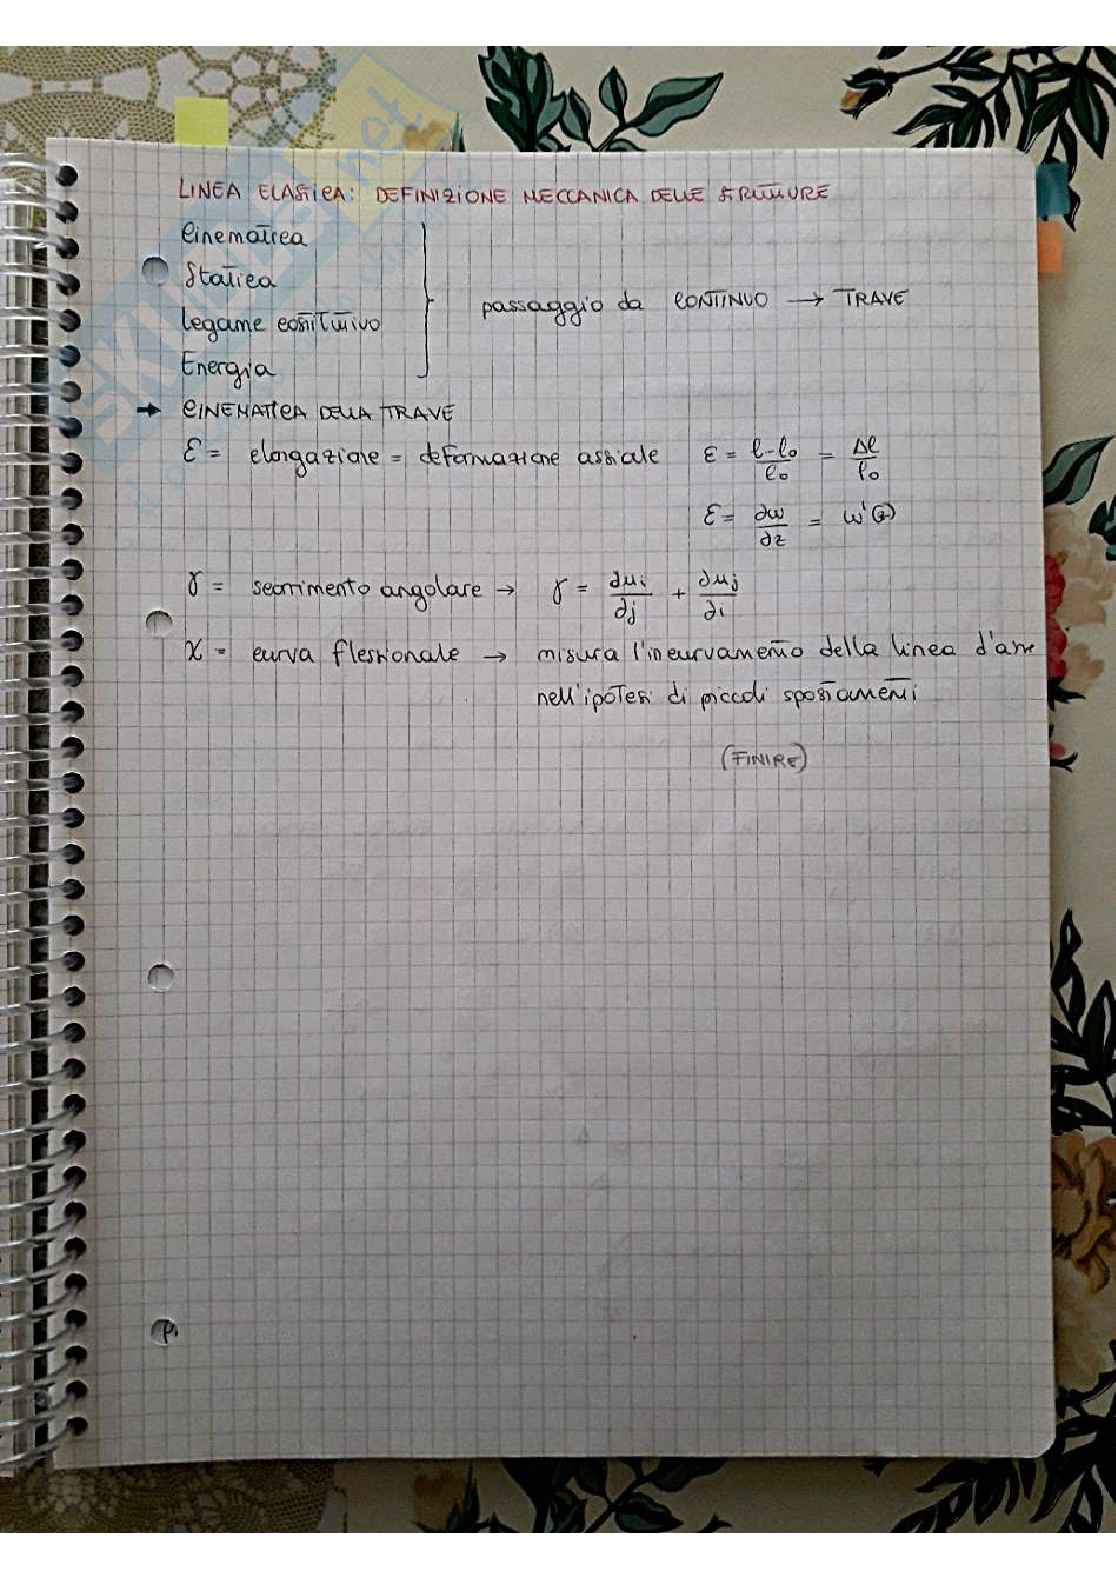 LINEA ELASTICA: DEFINIZIONE MECCANICA DELLE STRUTTURE
Cinematica
Statica
Legame costitutivo
Energia
passaggio da CONTINUO → TRAVE
→ CINEMATICA DELLA TRAVE
ε = elongazione = deformazione assiale ε = l-l₀/l₀ = Δl/l₀
ε = ∂w/∂z = w'(z)
γ = scorrimento angolare → γ = ∂ui/∂j + ∂uj/∂i
χ = curva flessionale → misura l'incurvamento della linea d'asse
nell'ipotesi di piccoli spostamenti
(FINIRE)